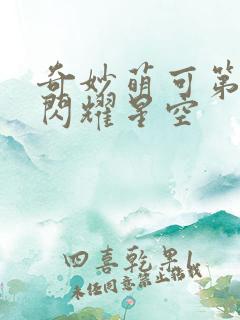 奇妙萌可第
閃耀星空
四喜乾果l
未经同意禁止搭载